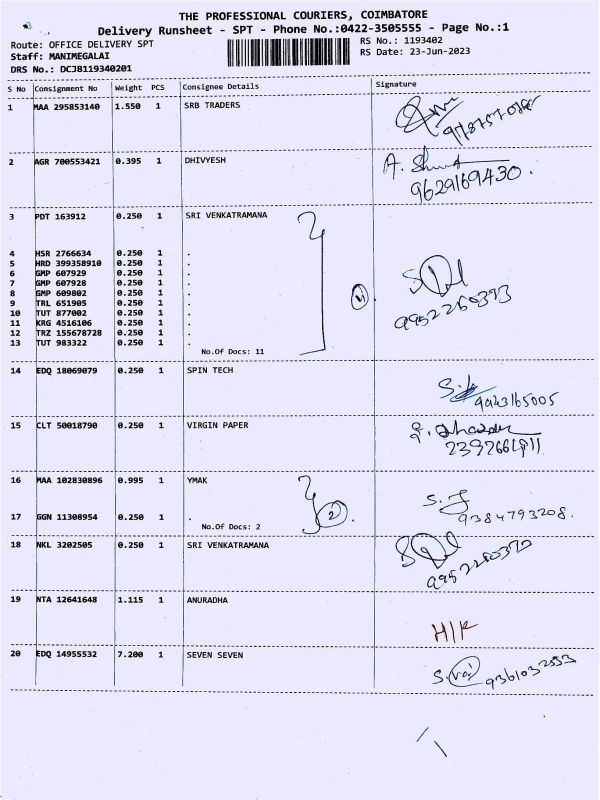 THE PROFESSIONAL COURIERS, COIMBATORE
Delivery Runsheet - SPT - Phone No.:0422-3505555 - Page No.:1
Route: OFFICE DELIVERY SPT
RS No.: 1193402
Staff: MANIMEGALAI
RS Date: 23-Jun-2023
DRS No.: DCJB119340201
S No Consignment No Weight PCS Consignee Details Signature
1 MAA 295853140 1.550 1 SRB TRADERS
2 AGR 700553421 0.395 1 DHIVYESH
9629169430.
3 PDT 163912 0.250 1 SRI VENKATRAMANA
4 HSR 2766634 0.250 1 .
5 HRD 399358910 0.250 1 .
6 GMP 607929 0.250 1 .
7 GMP 607928 0.250 1 .
8 GMP 609802 0.250 1 .
9 TRL 651905 0.250 1 .
10 TUT 877002 0.250 1 .
11 KRG 4516106 0.250 1 .
12 TRZ 155678728 0.250 1 .
13 TUT 983322 0.250 1 .
11
9952260393
No.Of Docs: 11
14 EDQ 18069079 0.250 1 SPIN TECH
9443165005
15 CLT 50018790 0.250 1 VIRGIN PAPER
16 MAA 102830896 0.995 1 YMAK
17 GGN 11308954 0.250 1 .
2
9384793208.
No.Of Docs: 2
18 NKL 3202505 0.250 1 SRI VENKATRAMANA
19 NTA 12641648 1.115 1 ANURADHA
H/K
20 EDQ 14955532 7.200 1 SEVEN SEVEN
9361032553